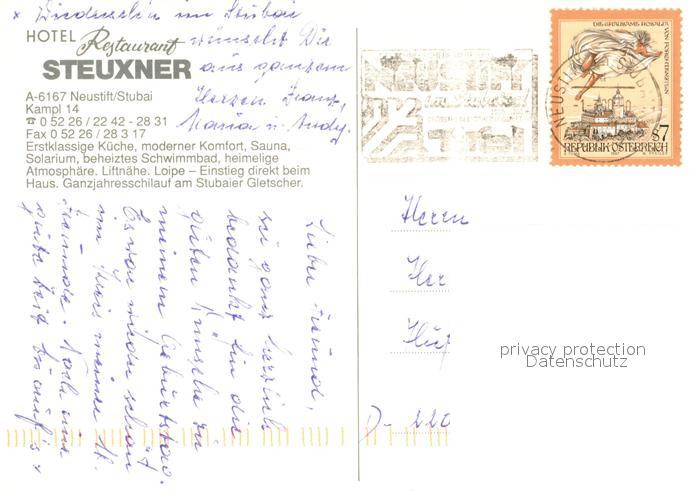 HOTEL Restaurant
STEUXNER
A-6167 Neustift/Stubai
Kampl 14
☎ 0 52 26 / 22 42 - 28 31
Fax 0 52 26 / 28 3 17
Erstklassige Küche, moderner Komfort, Sauna,
Solarium, beheiztes Schwimmbad, heimelige
Atmosphäre. Liftnähe. Loipe – Einstieg direkt beim
Haus. Ganzjahresschilauf am Stubaier Gletscher.
Lieber Freund,
sei ganz herzlich
bedankt für die
guten Wünsche zu
meinem Geburtstag.
Es war wieder schön
im Kreis meiner
Freunde.
gute Zeit
x Wiedersehn im Stubai
wünscht Dir
aus ganzem
Herzen Franz,
Maria u. Andy.
DIE GRAUSAME ROSALIA VON FORCHTENSTEIN
S7
REPUBLIK ÖSTERREICH
NEUSTIFT
im Stubaital
Herrn
Her
D-220
privacy protection
Datenschutz